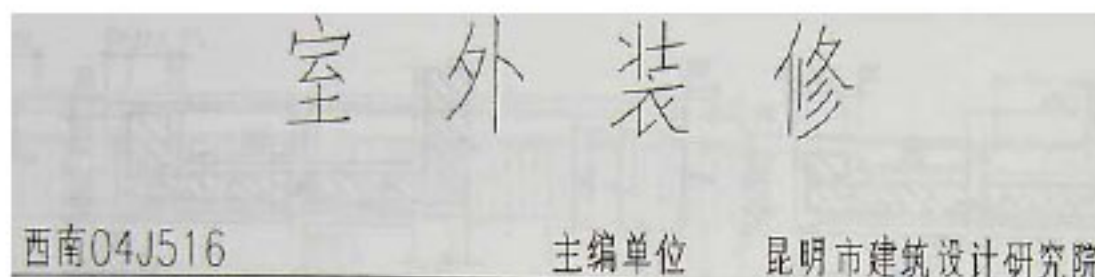 室外装修
西南04J516 主编单位 昆明市建筑设计研究院